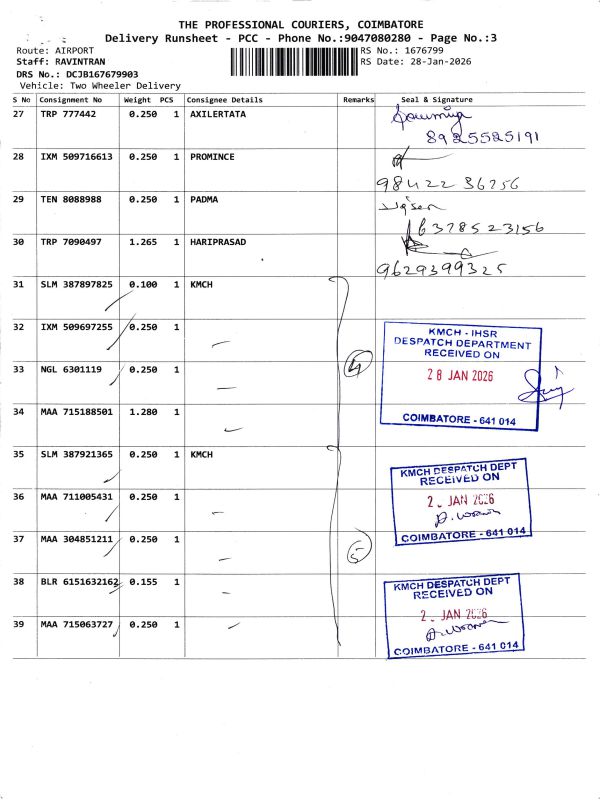 THE PROFESSIONAL COURIERS, COIMBATORE
Delivery Runsheet - PCC - Phone No.:9047080280 - Page No.:3
Route: AIRPORT
RS No.: 1676799
Staff: RAVINTRAN
RS Date: 28-Jan-2026
DRS No.: DCJB167679903
Vehicle: Two Wheeler Delivery
S No Consignment No Weight PCS Consignee Details Remarks Seal & Signature
27 TRP 777442 0.250 1 AXILERTATA
8925525191
28 IXM 509716613 0.250 1 PROMINCE
98422 36756
29 TEN 8088988 0.250 1 PADMA
6378523156
30 TRP 7090497 1.265 1 HARIPRASAD
9629399325
31 SLM 387897825 0.100 1 KMCH
32 IXM 509697255 0.250 1 —
33 NGL 6301119 0.250 1 — 4
34 MAA 715188501 1.280 1 —
KMCH - IHSR
DESPATCH DEPARTMENT
RECEIVED ON
28 JAN 2026
COIMBATORE - 641 014
35 SLM 387921365 0.250 1 KMCH
36 MAA 711005431 0.250 1 —
37 MAA 304851211 0.250 1 — 5
KMCH DESPATCH DEPT
RECEIVED ON
JAN 2026
COIMBATORE - 641 014
38 BLR 6151632162 0.155 1 —
39 MAA 715063727 0.250 1 —
KMCH DESPATCH DEPT
RECEIVED ON
JAN 2026
COIMBATORE - 641 014